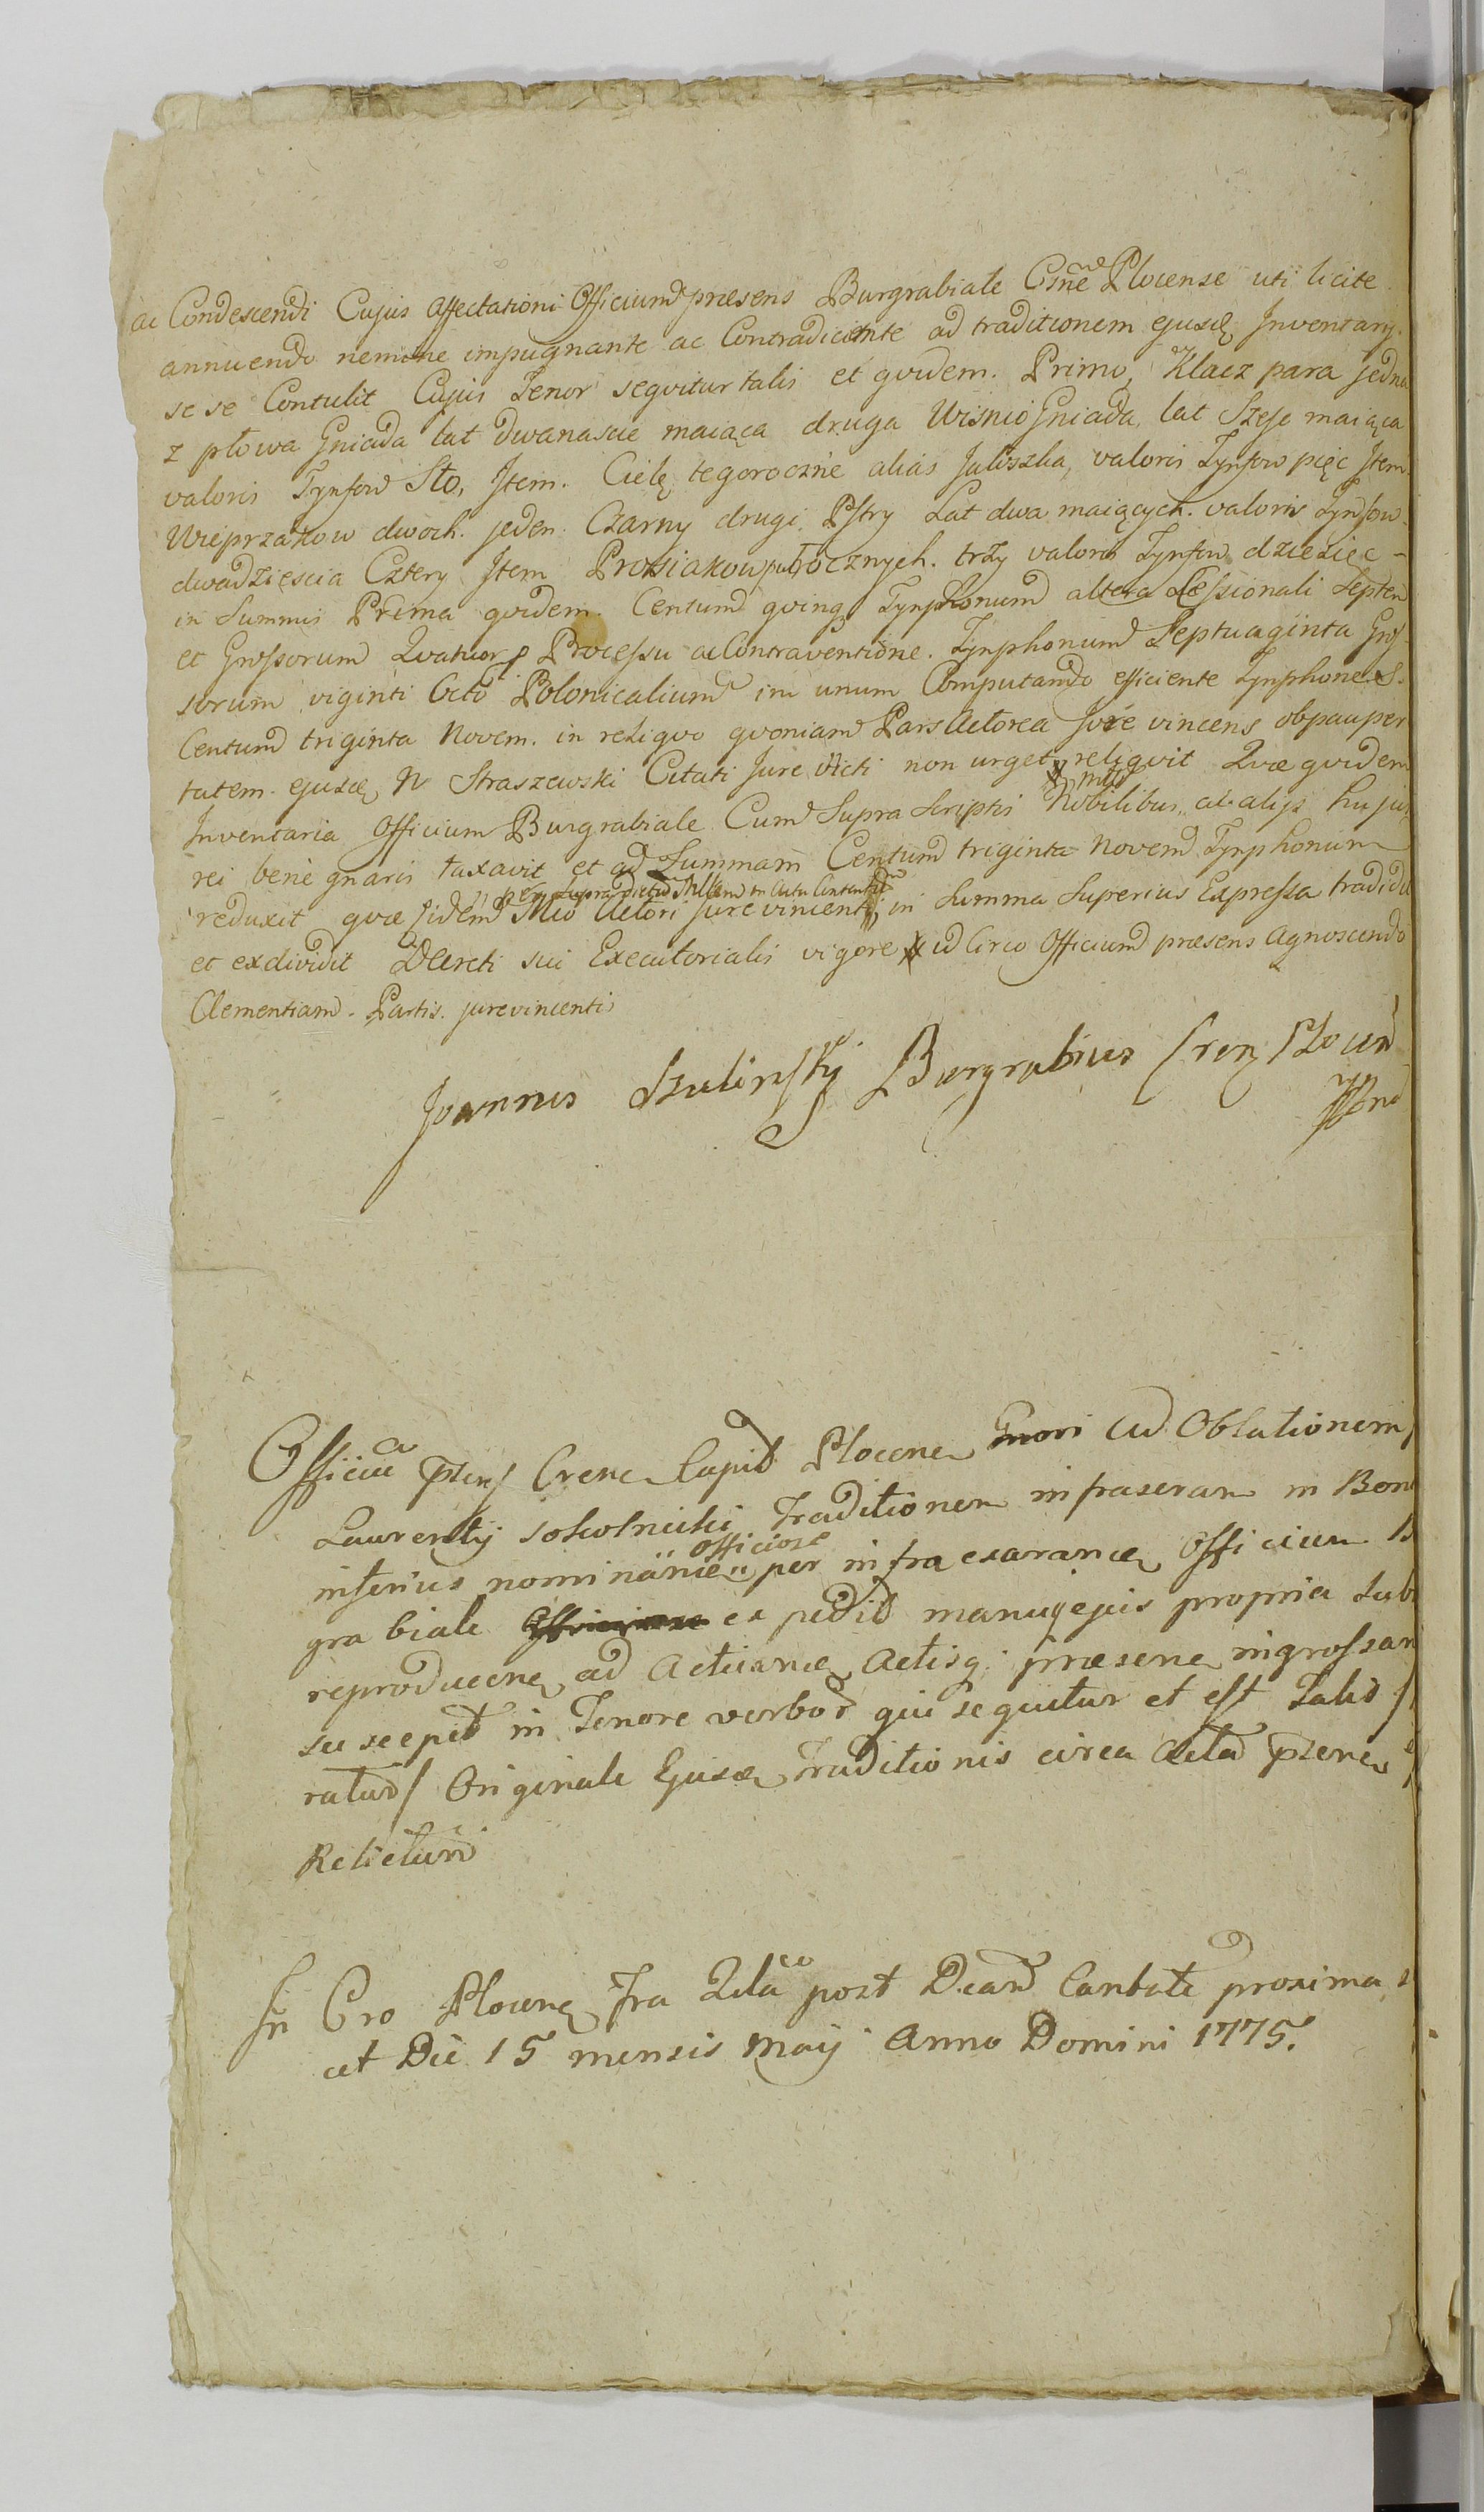 ac Condescendi Cujus affectationi Officium præsens Burgrabiale Csne Plocense uti licite
annuendo nemine impugnante ac Contradicente ad traditionem ejusd Inventarij
se se Contulit Cujus Tenor seqvitur talis et qvidem. Primo, Klacz para jedna
z płowa Gniada lat dwanascie maiąca druga WisnioGniada, lat Szesc maiąca
valoris Tynfow Sto, Item. Cielę tegoroczne alias Jałoszka, valoris Tynfow pięc Item
Wieprzakow dwoch. jeden Czarny drugi Pstry Lat dwa maiących. valoris Tynfow
dwadziescia Cztery Item Prosiakow pułrocznych. trzy valoris Tynfow dziesięc -
in Summis Prima qvidem. Centum qvinq Tynphonum altera Cessionali Septem
et Grossorum Qvatuor Processu ac Contraventione. Tynphonum Septuaginta Gros
sorum viginti Octo Polonicalium im unum Computando efficiente Tynphones.
Centum triginta Novem. in reliqvo qvoniam Pars Actorea Jure vincens ob pauper
tatem. ejusd N Straszewski Citati Jure victi non urget reliqvit Qvæ qvidem
Inventaria Officium Burgrabiale Cum Supra Scriptis Nobilibus ac alijs hujus
rei bene gnaris taxavit et ad Summam Centum triginta Novem Tynphonum
reduxit qvæ eidem Mco Actori jure vincenti in Summa Superius Expressa tradidit
et exdividit Decreti sui Executorialis vigore id Circo Officium præsens Agnoscendo
Clementiam. Partis. jurevincentis
Joannes Burgrabius
Officiu Crene Capit Plocene ad Oblationem
Laurentij Sokolnicki Traditionem infraseram in Bon
inferius nominanie per infra exarane Officium B
officiose
grabiale expedit manuq ejus propria Sub
reproducene ad Actuane Actisq præsene ingrossan
suscepit in Tenore verbor qui sequitur et est Talis
ratur Originale Ejusd Traditionis circa Acta pzene
Relictum
In Cro Plocene Fra 2da post Dcam Cantate proxima
et Die 15 mensis Maij Anno Domini 1775.